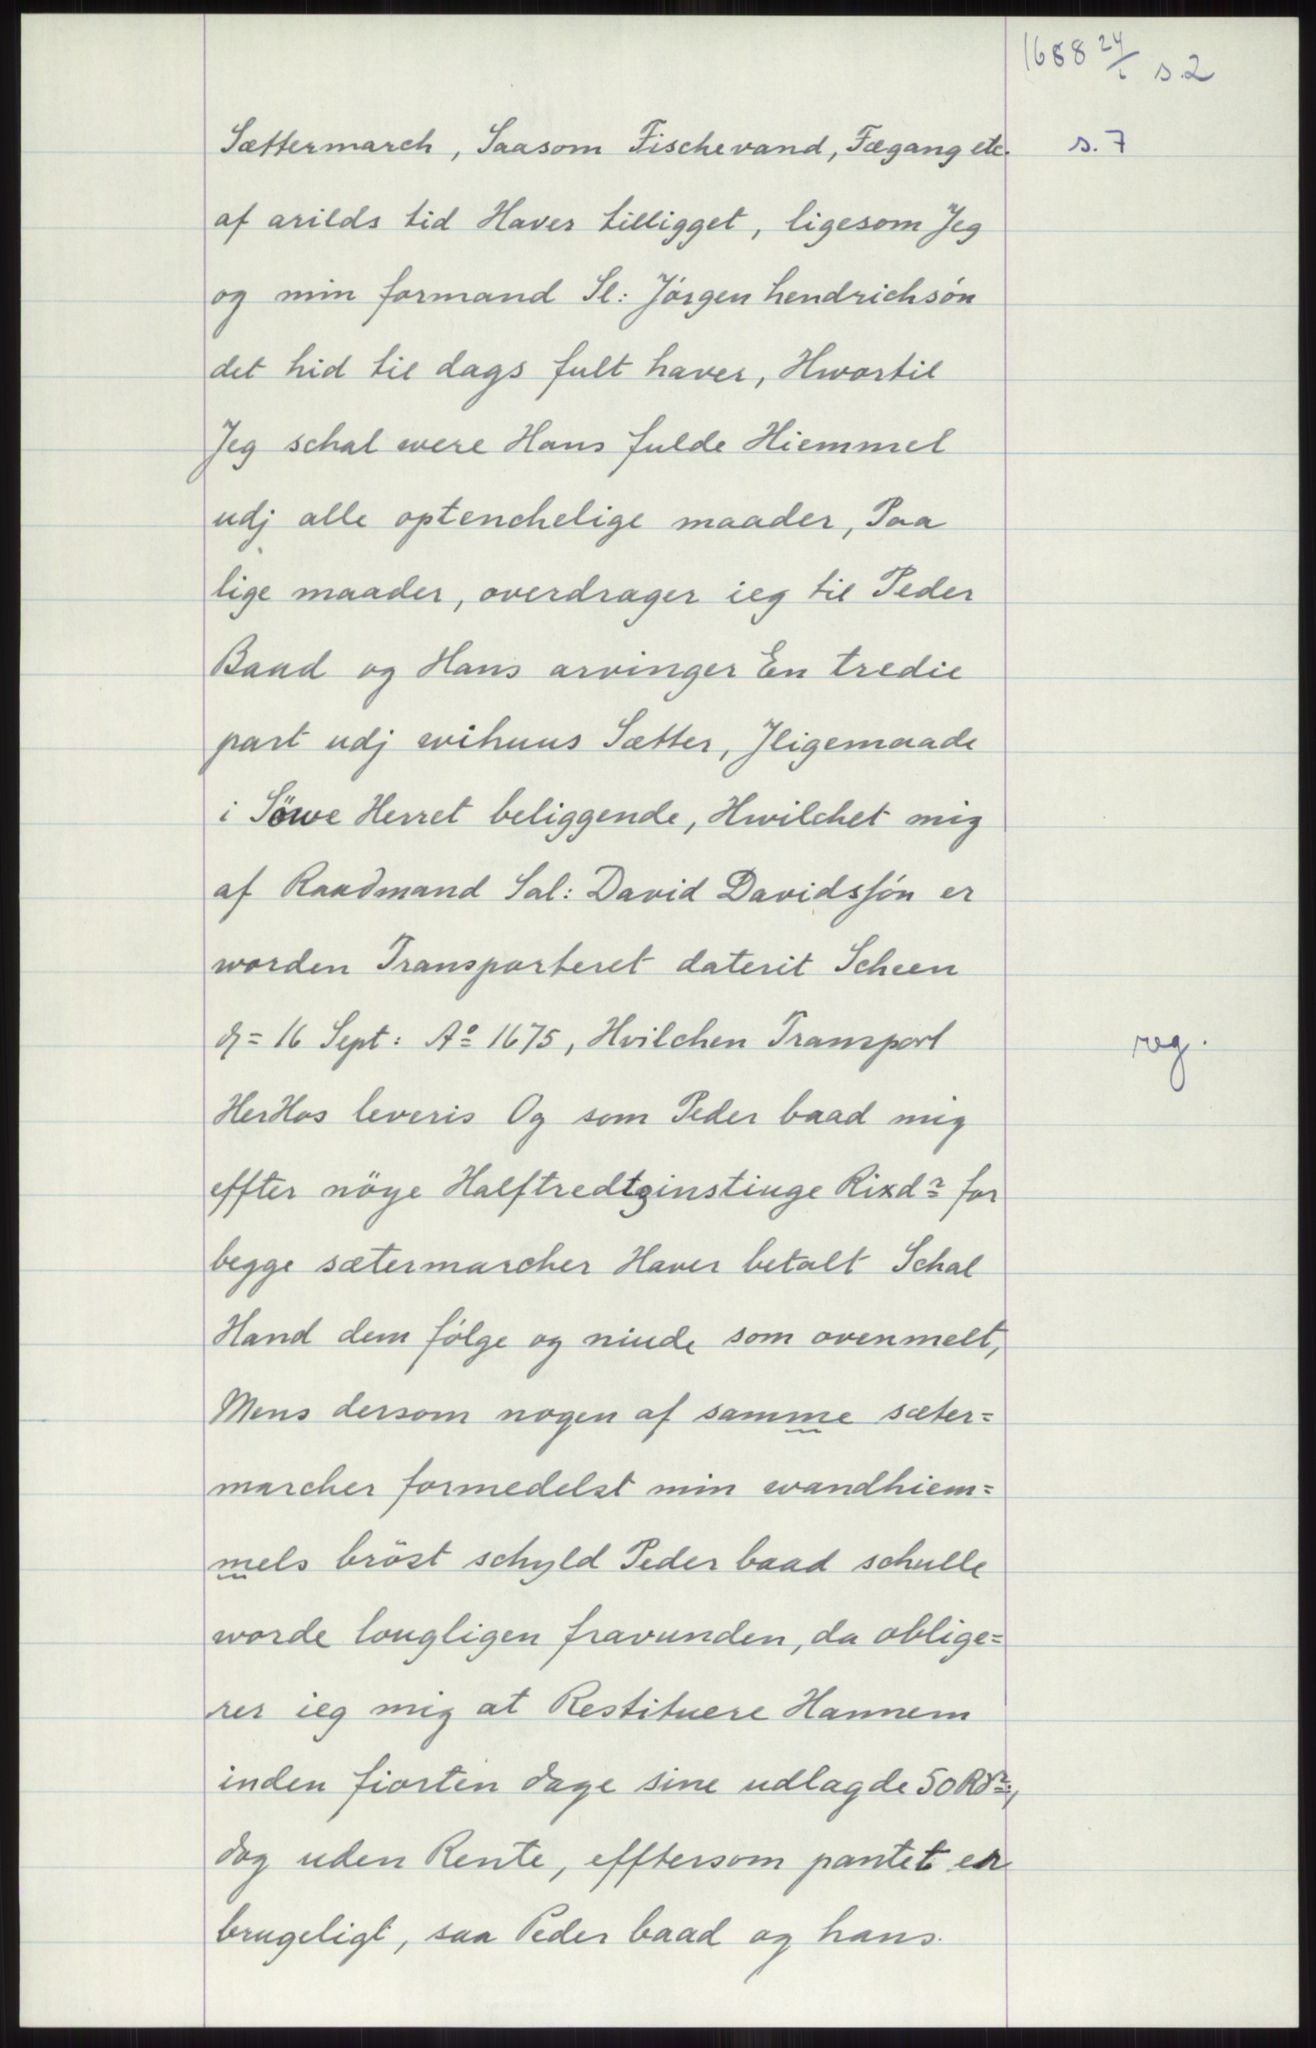 1688 24/1 s.2
Sættermarch, Saasom Fischevand, Fægang etc. s. 7
af arilds tid Haver tilligget, ligesom Jeg
og min formand Sl: Jörgen hendrichsön
det hid til dags fult haver, Hwortil
Jeg schal were Hans fulde Hiemmel
udj alle optenchelige maader, Paa
lige maader, overdrager ieg til Peder
Baad og Hans arvinger En tredie
part udj wihuus Sætter, Jligemaade
i Söwe Herret beliggende, Hwilchet mig
af Raadmand Sal: David Davidssön er
worden Transporteret daterit Scheen
d= 16 Sept: Aº 1675, Hvilchen Transport reg.
HerHos leveris Og som Peder baad mig
effter nöye Halftredtzinstiuge Rixdr for
begge sætermarcher Haver betalt Schal
Hand dem fölge og niude som ovenmelt,
Mens dersom nogen af samme sæter=
marcher formedelst min wandhiem=
mels bröst schyld Peder baad schulle
worde lougligen fravunden, da oblige=
rer ieg mig at Restituere Hannem
inden fiorten dage sine udlagde 50 Rdr:,
dog uden Rente, efftersom pantet er
brugeligt, saa Peder baad og hans.